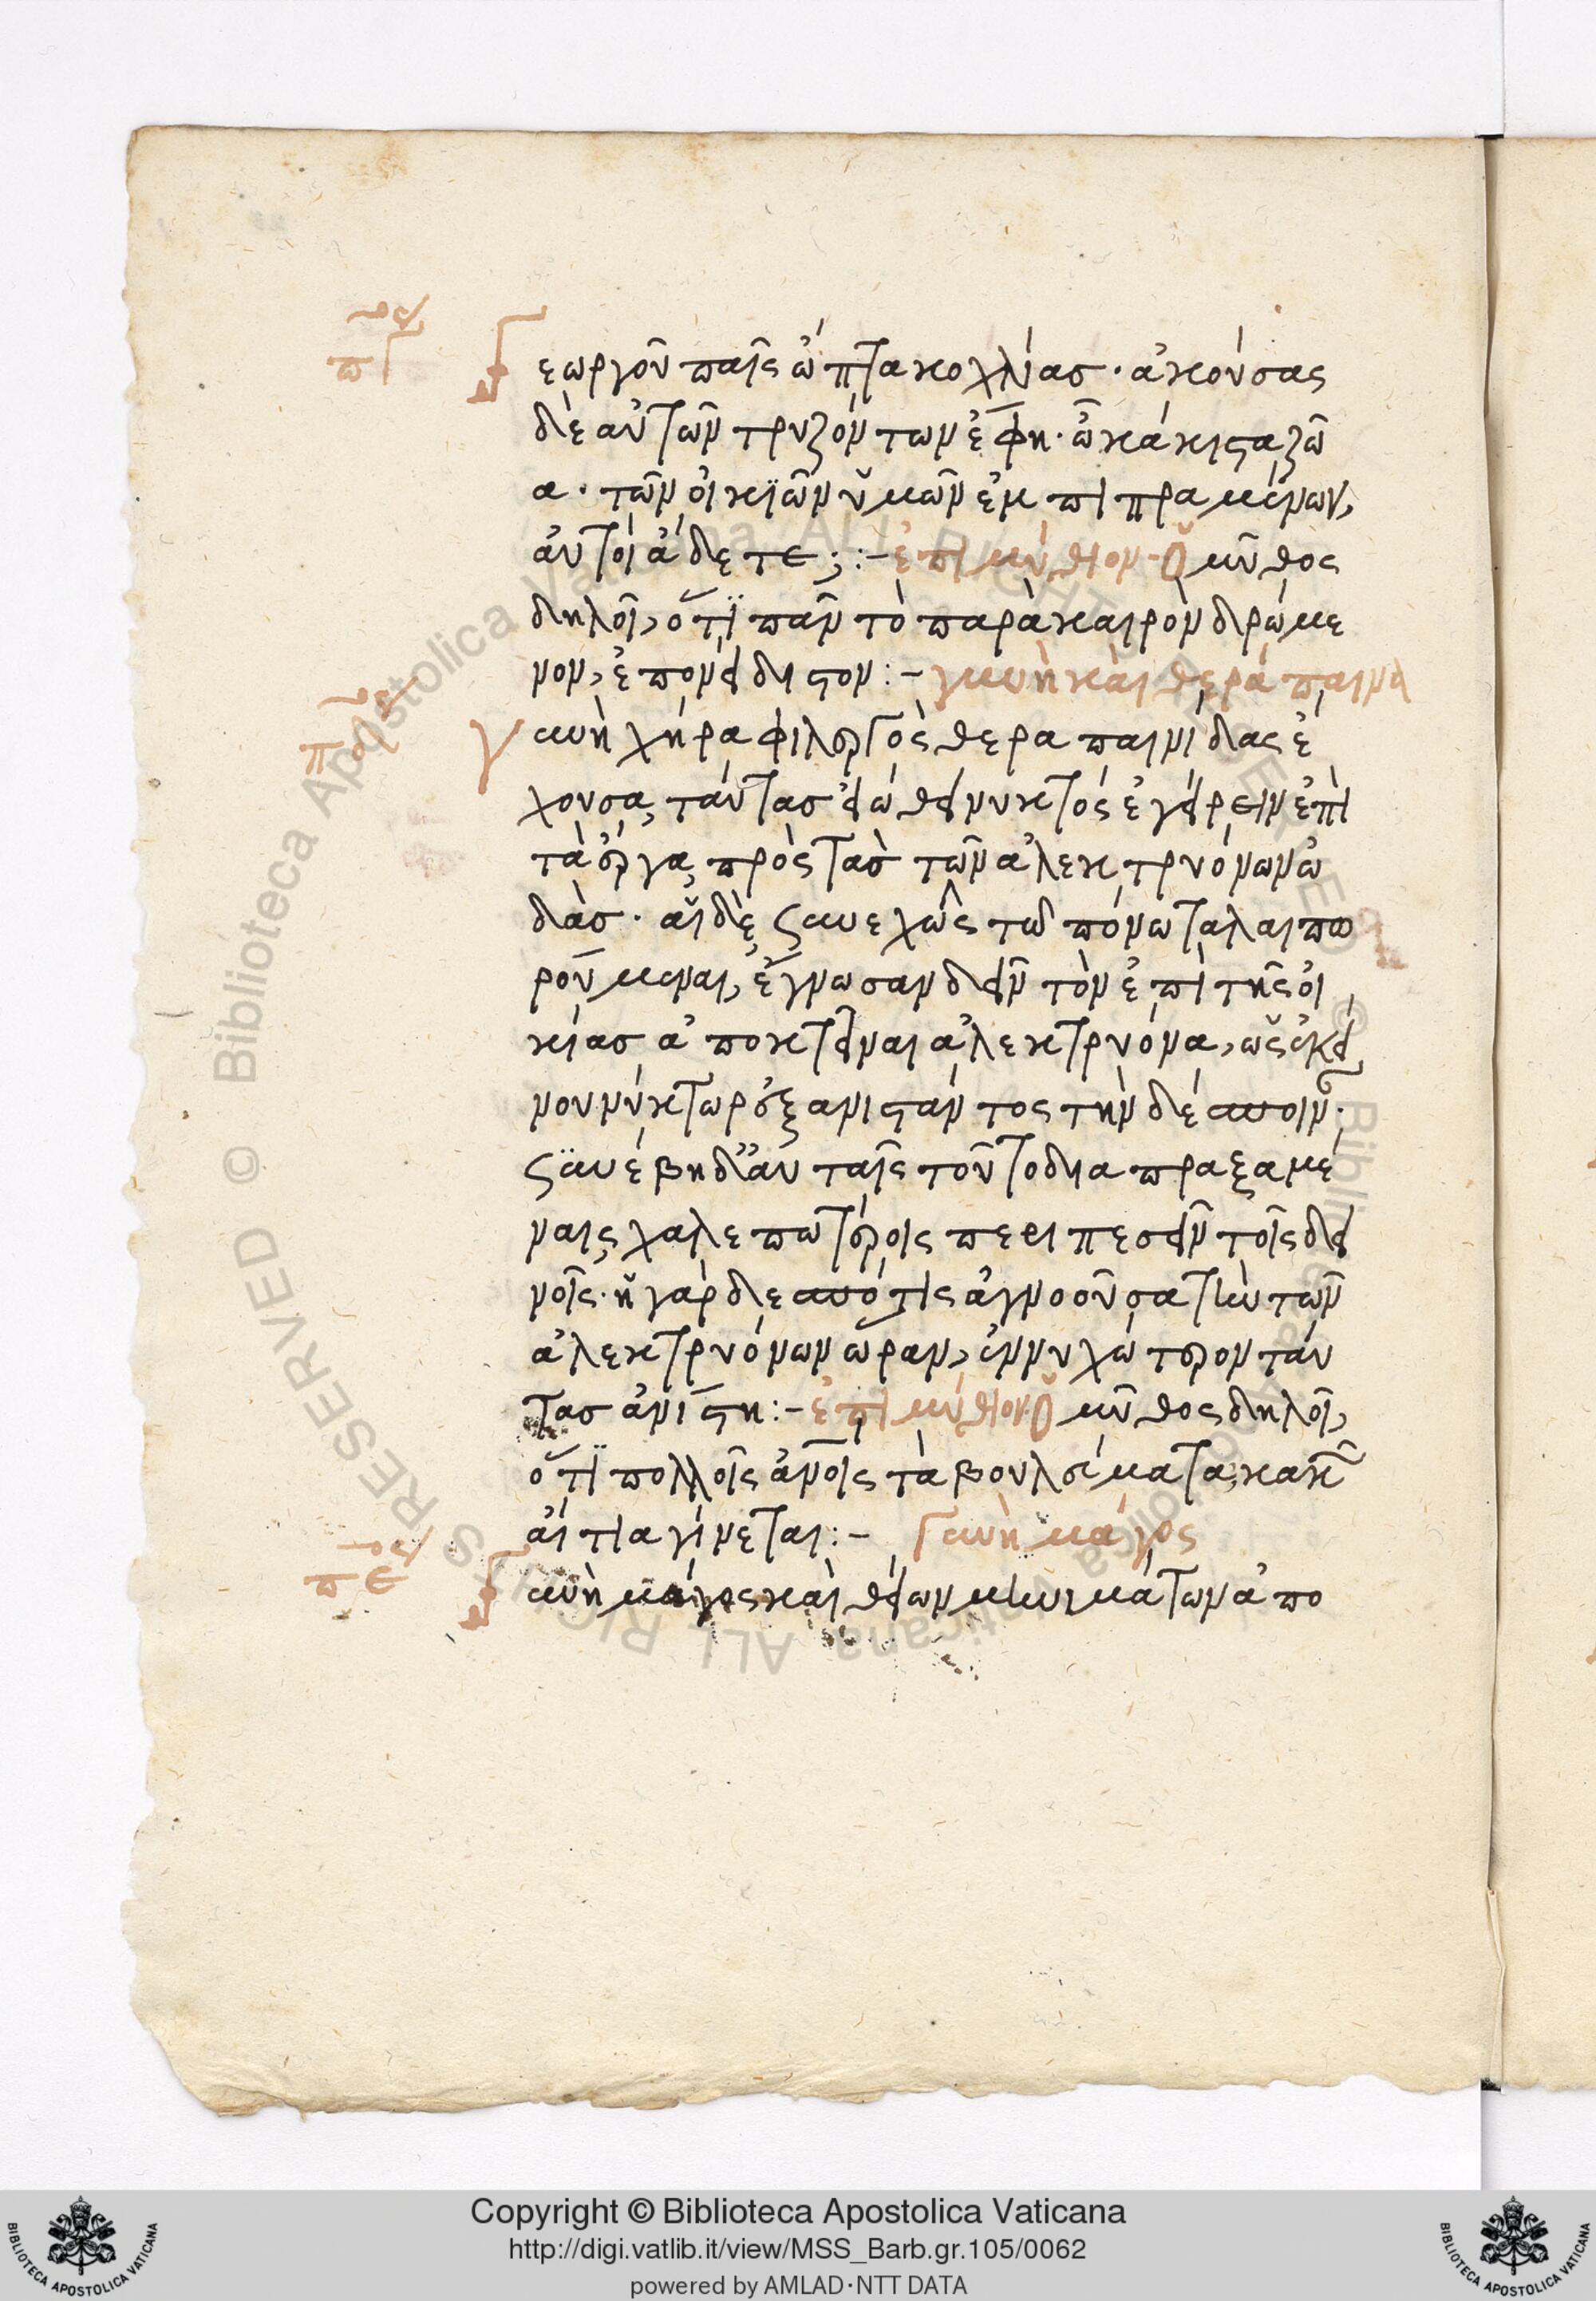 Γεωργοῦ παῖς ὤπτα κοχλίας· ἀκούσας
δὲ αὐτῶν τρυζόντων ἔφη· ὦ κάκιστα ζῶ
α· τῶν οἰκιῶν ὑμῶν ἐμπιπραμένων,
αὐτοὶ ἄδετε; :- ἐπιμύθιον· Ὁ μῦθος
δηλοῖ, ὅτι πᾶν τὸ παρὰ καιρὸν δρώμε
νον, ἐπονείδιστον :- γυνὴ καὶ θεράπαιναι
Γυνὴ χήρα φιλεργὸς θεραπαινίδας ἔ
χουσα, ταύτας εἰώθει νυκτὸς ἐγείρειν ἐπὶ
τὰ ἔργα, πρὸς τὰς τῶν ἀλεκτρυόνων ὠ
δάς· αἱ δὲ συνεχῶς τῷ πόνῳ ταλαιπω
ρούμεναι, ἔγνωσαν δεῖν τὸν ἐπὶ τῆς οἰ
κίας ἀποκτεῖναι ἀλεκτρυόνα, ὡς ἐκεί
νου νύκτωρ ἐξανιστάντος τὴν δέσποιναν·
συνέβη δ' αὐταῖς τοῦτο διαπραξαμέ
ναις χαλεπωτέροις περιπεσεῖν τοῖς δει
νοῖς· ἡ γὰρ δεσπότις ἀγνοοῦσα τὴν τῶν
ἀλεκτρυόνων ὥραν, ἐννυχώτερον ταύ
τας ἀνίστη :- ἐπιμύθιον Ὁ μῦθος δηλοῖ,
ὅτι πολλοῖς ἀνθρώποις τὰ βουλεύματα, κακῶν
αἴτια γίνεται :- Γυνὴ μάγος
Γυνὴ μάγος καὶ θείων μηνιμάτων ἀπο
Copyright © Biblioteca Apostolica Vaticana
http://digi.vatlib.it/view/MSS_Barb.gr.105/0062
powered by AMLAD·NTT DATA